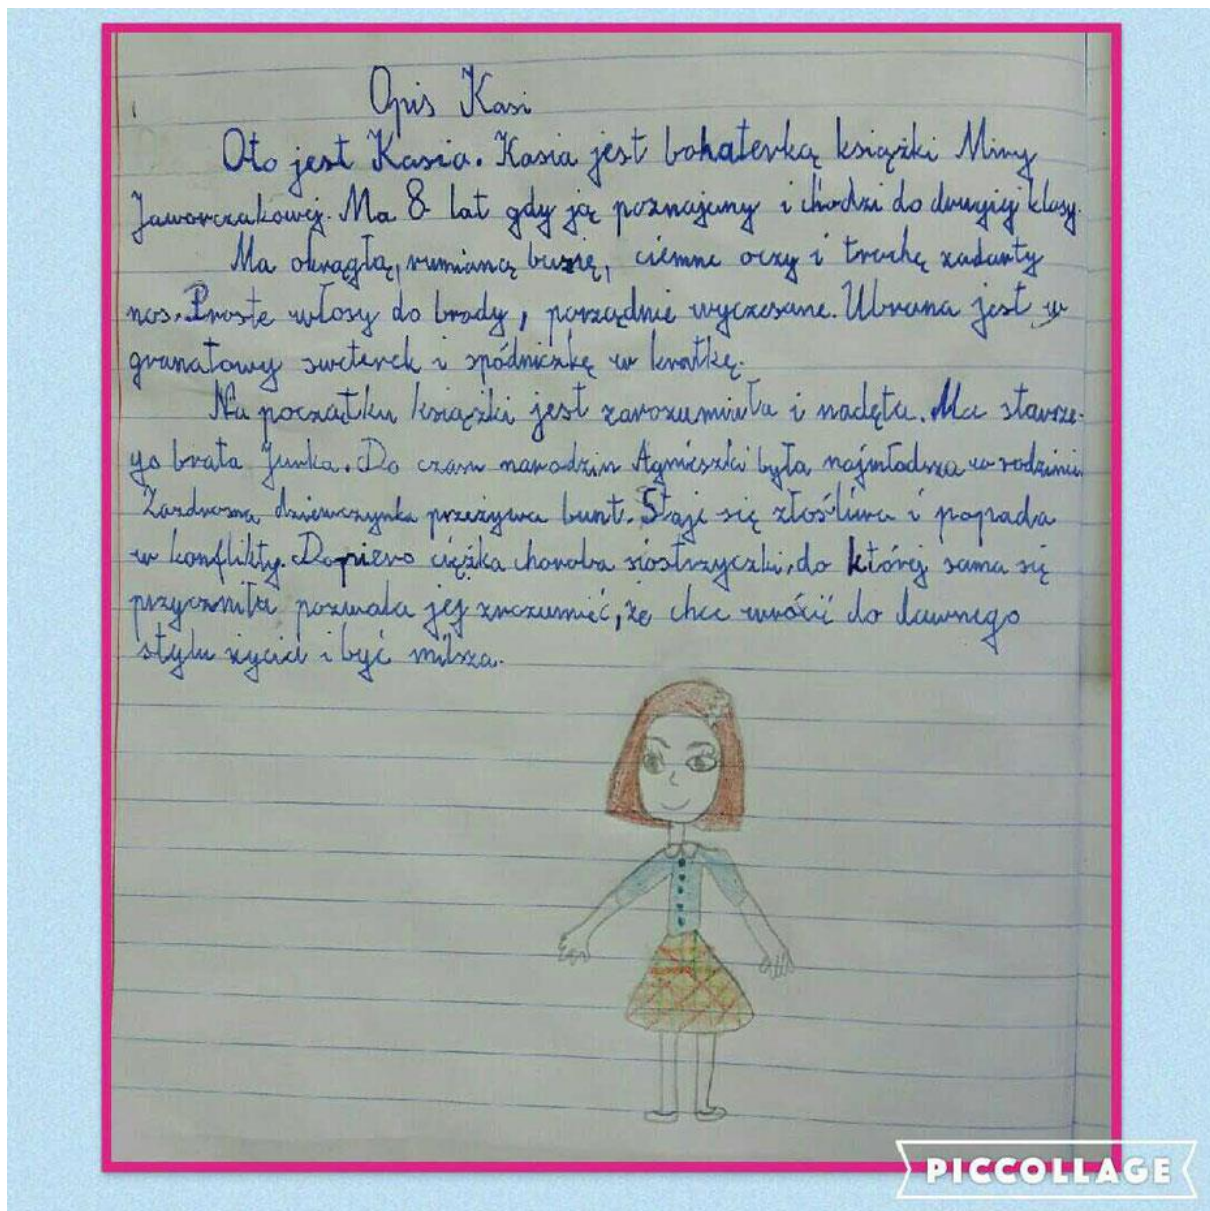 Opis Kasi
Oto jest Kasia. Kasia jest bohaterką książki Miry
Jaworczakowej. Ma 8 lat gdy ją poznajemy i chodzi do drugiej klasy.
Ma okrągłą, rumianą buzię, ciemne oczy i trochę zadarty
nos. Proste włosy do brody, porządnie wyczesane. Ubrana jest w
granatowy sweterek i spódniczkę w kratkę.
Na początku książki jest zarozumiała i nadęta. Ma starsze-
go brata Jurka. Do czasu narodzin Agnieszki była najmłodsza w rodzinie.
Zazdrosna dziewczynka przeżywa bunt. Staje się złośliwa i popada
w konflikty. Dopiero ciężka choroba siostrzyczki, do której sama się
przyczyniła pozwala jej zrozumieć, że chce wrócić do dawnego
stylu życia i być milsza.
PICCOLLAGE